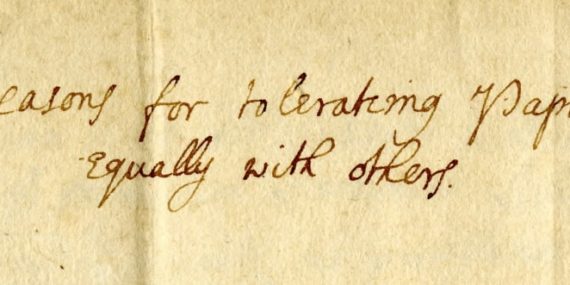 easons for tolerateing Pap
Equally with others.